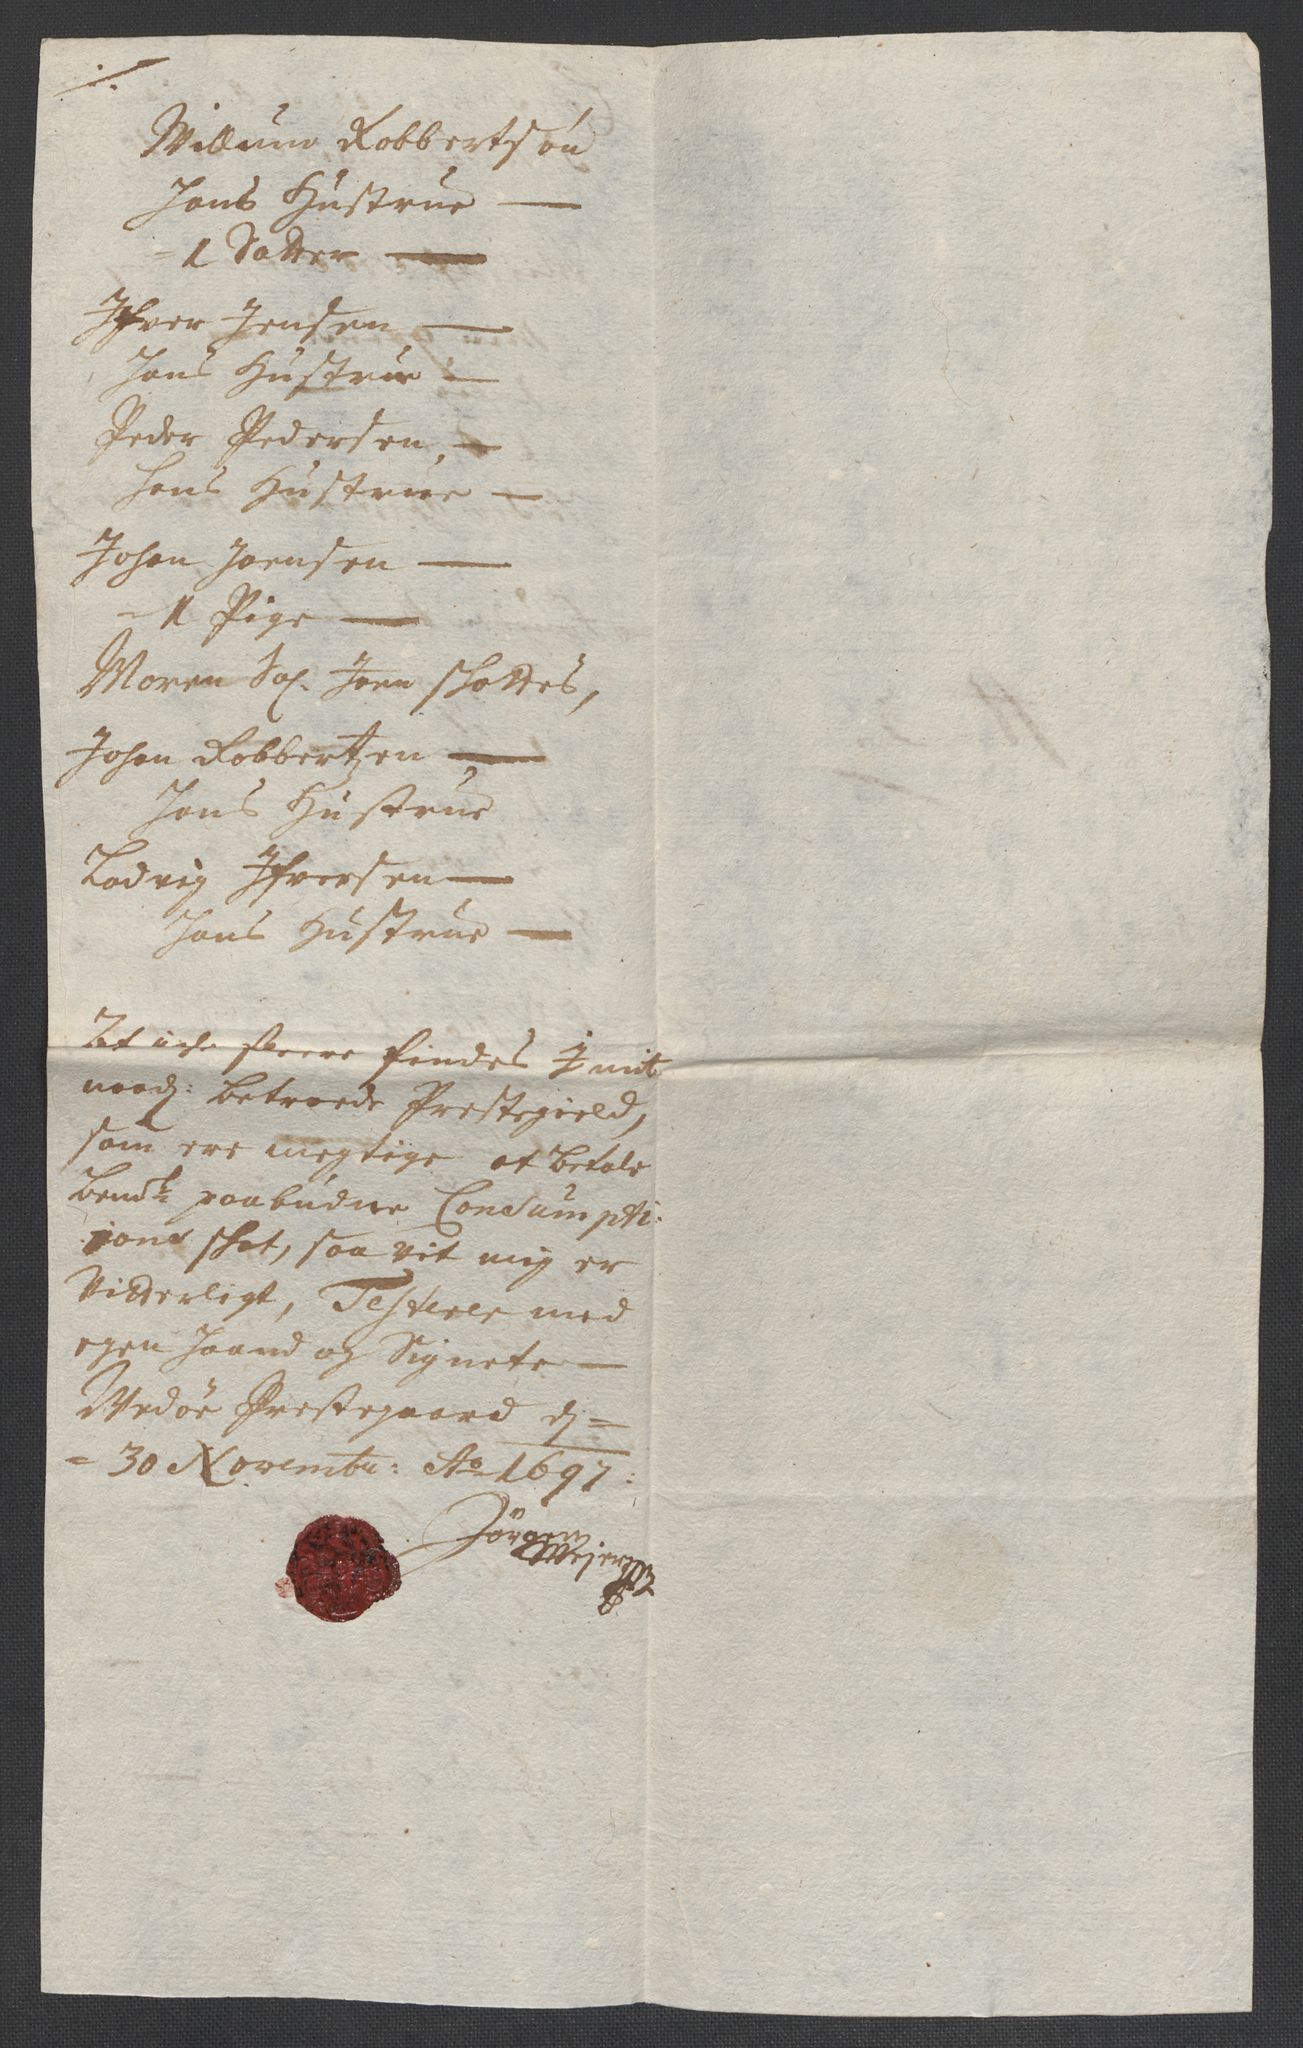 Willum Robbertsøn
Hans Hustrue —
- 1 Datter —
Ifver Jensen —
Hans Hustrue —
Peder Pedersen, —
Hans Hustrue —
Johan Joensen —
- 1 Pige —
Maren Sal. Joen Skottes,
Johan Robbertzen —
Hans Hustrue
Lodvig Ifversen —
Hans Hustrue —
At icke fleere findes I mit
naad: betroede Prestegield,
som ere megtige at betale
bem.te paabudne Consumpti-
ions skat, saa vit mig er
Vitterligt, Testerer med
egen Haand og Signete —
Wedøe Prestegaard d. =
= 30 Novembr: Ao 1697:
Jørgen
Mejer